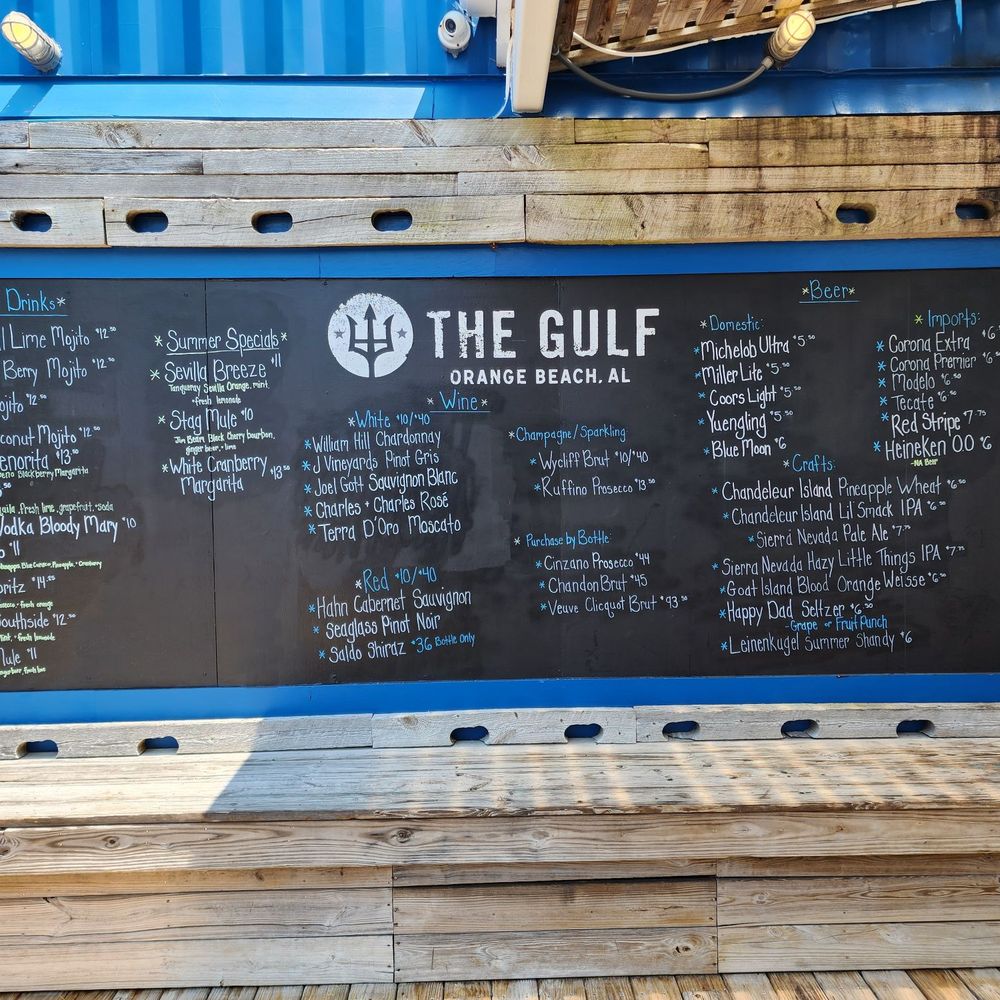 Drinks*
Lime Mojito $12.50
Berry Mojito $12.50
ojito $12.50
conut Mojito $12.50
enorita $13.50
Blackberry Margarita
.fresh lime, grapefruit, +soda
Vodka Bloody Mary $10
$11
Blue Curacao, Pineapple, + Cranberry
pritz $14.25
prosecco, + fresh orange
outhside $12.50
mint, + fresh lemonade
Mule $11
ginger beer, fresh lime
*Summer Specials*
*Sevilla Breeze $11
Tanqueray Sevilla Orange, mint,
+fresh lemonade
*Stag Mule $10
Jim Beam Black Cherry bourbon,
ginger beer, + lime
*White Cranberry
Margarita $13.50
THE GULF
ORANGE BEACH, AL
*Wine*
*White $10/$40
*William Hill Chardonnay
*J Vineyards Pinot Gris
*Joel Gott Sauvignon Blanc
*Charles + Charles Rosé
*Terra D'Oro Moscato
*Red $10/$40
*Hahn Cabernet Sauvignon
*Seaglass Pinot Noir
*Saldo Shiraz $36 Bottle Only
*Champagne/Sparkling:
*Wycliff Brut $10/$40
*Ruffino Prosecco $13.50
*Purchase by Bottle:
*Cinzano Prosecco $44
*Chandon Brut $45
*Veuve Clicquot Brut $93.50
*Beer*
*Domestic:
*Michelob Ultra $5.50
*Miller Lite $5.50
*Coors Light $5.50
*Yuengling $5.50
*Blue Moon $6
*Imports:
*Corona Extra $6
*Corona Premier $6.50
*Modelo $6.50
*Tecate $6.50
*Red Stripe $7.75
*Heineken 0.0 $6
-NA Beer
*Crafts:
*Chandeleur Island Pineapple Wheat $6.50
*Chandeleur Island Lil Smack IPA $6.50
*Sierra Nevada Pale Ale $7.75
*Sierra Nevada Hazy Little Things IPA $7.75
*Goat Island Blood Orange Weisse $6.50
*Happy Dad Seltzer $6.50
-Grape or Fruit Punch
*Leinenkugel Summer Shandy $6